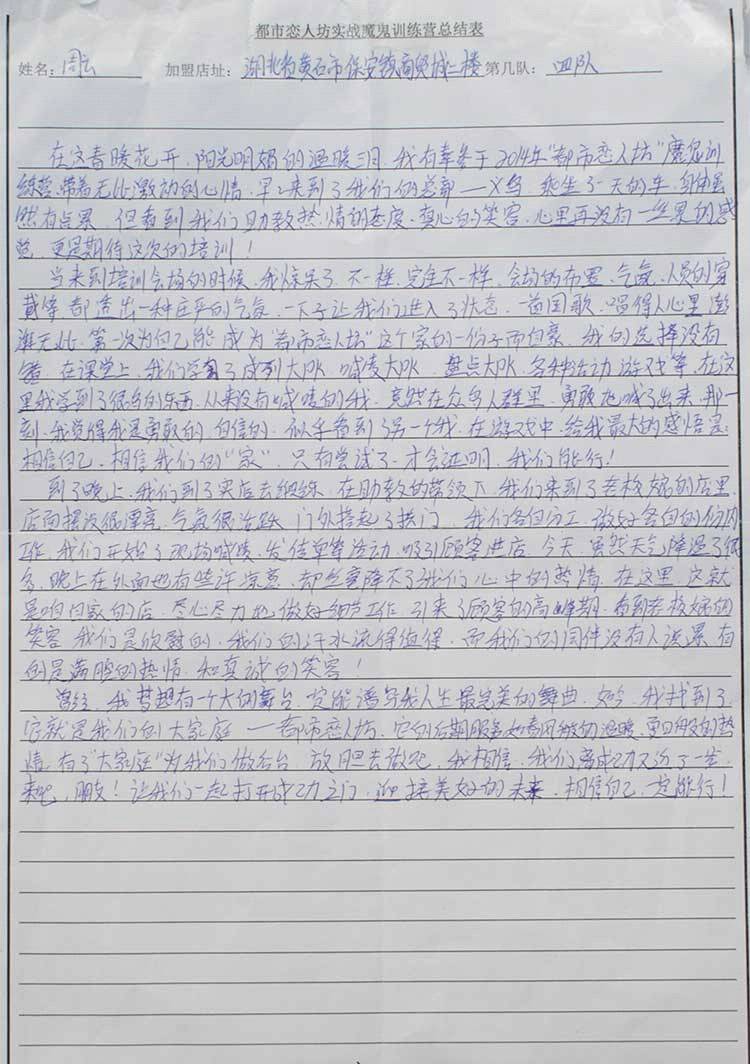 都市恋人坊实战魔鬼训练营总结表
姓名：周云 加盟店址：湖北省黄石市保安镇商贸城二楼 第几队：四队
在这春暖花开，阳光明媚的温暖三月，我有幸参于2014年“都市恋人坊”魔鬼训
练营，带着无比激动的心情，早早来到了我们的总部——义乌，乘坐了一天的车，身体虽
然有点累，但看到我们助教热情的态度，真心的笑容，心里再没有一丝累的感
觉，更是期待这次的培训！
当来到培训会场的时候，我惊呆了，不一样，完全不一样，会场的布置、气氛、人员的穿
戴等都透出一种庄严的气氛，一下子让我们进入了状态，一首国歌，唱得人心里澎
湃无比，第一次为自己能成为“都市恋人坊”这个家的一份子而自豪，我的选择没有
错，在课堂上，我们学习了成列大PK，喊麦大PK，盘点大PK，各种活动游戏等，在这
里我学到了很多的东西，从来没有喊麦的我，竟然在众多人群里，勇敢地喊了出来，那一
刻，我觉得我是勇敢的，自信的，似乎看到了另一个我，在游戏中，给我最大的感悟是：
相信自己，相信我们的“家”，只有尝试了，才会证明，我们能行！
到了晚上，我们到了实店去锻练，在助教的带领下，我们来到了老板娘的店里，
店面摆设很漂亮，气氛很活跃，门外搭起了拱门，我们各自分工，做好各自的份内
工作，我们开始了现场喊麦，发传单等活动，吸引顾客进店，今天，虽然天气降温了很
多，晚上在外面也有些许凉意，却丝毫降不了我们心中的热情，在这里，这就
是咱自家的店，尽心尽力地做好细节工作，引来了顾客的高峰期，看到老板娘的
笑容，我们是欣慰的，我们的汗水流得值得，而我们的同伴没有人说累，有
的是满腔的热情，和真诚的笑容！
曾经，我梦想有一个大的舞台，定能谱写我人生最完美的舞曲，如今，我找到了，
它就是我们的大家庭——都市恋人坊，它的后期服务如春风般的温暖，夏日般的热
情，有了“大家庭”为我们做后台，放胆去做吧，我相信，我们离成功又近了一步，
来吧，朋友！让我们一起打开成功之门，迎接美好的未来，相信自己，定能行！